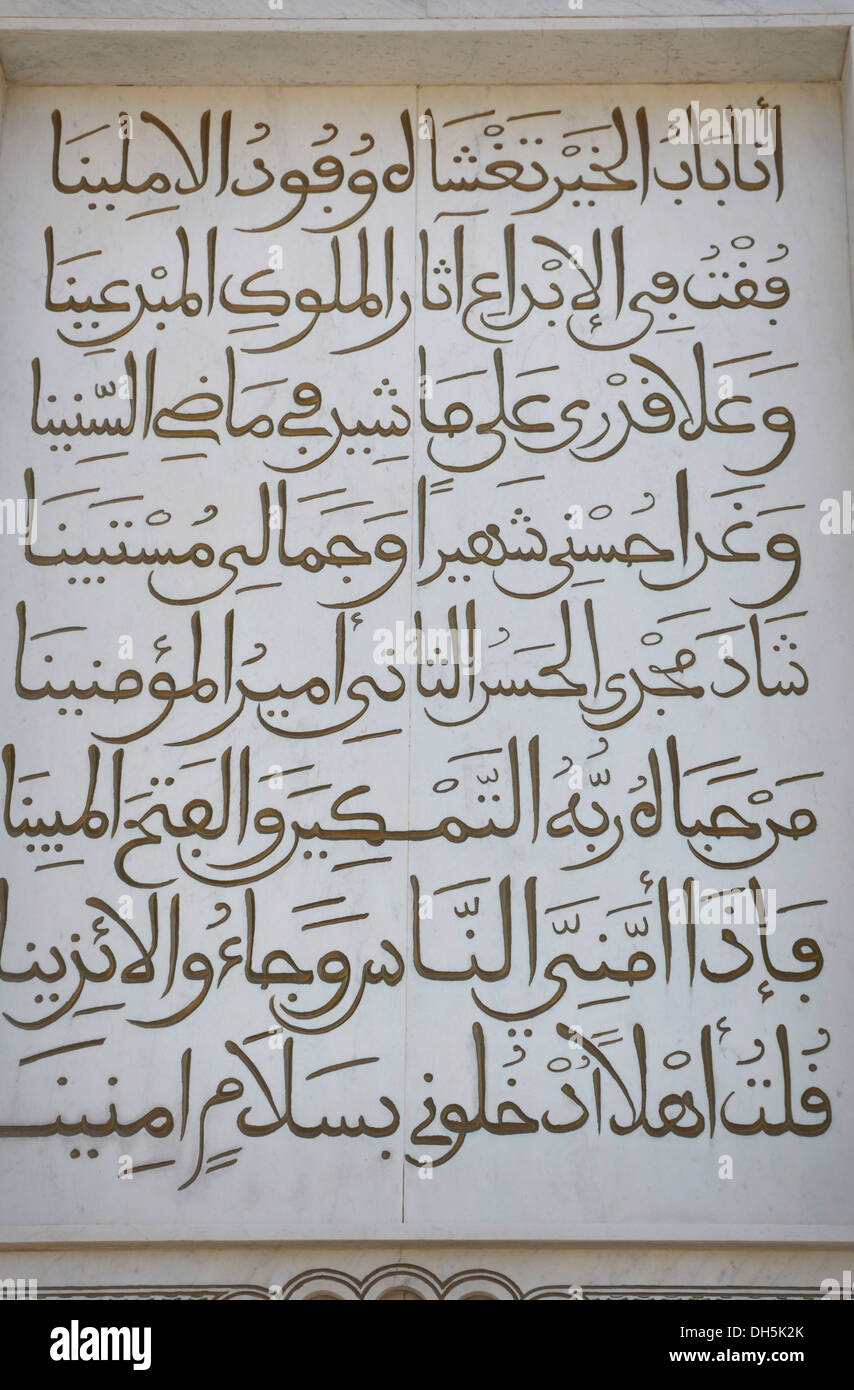 أَنَا بَابُ الْخَيْرِ تَغْشَانِي وُفُودُ الْآمِلِينَا
فُقْتُ فِي الْإِبْدَاعِ آثَارَ الْمُلُوكِ الْمُبْدِعِينَا
وَعَلَا قَدْرِي عَلَى مَا شِيدَ فِي مَاضِي السِّنِينَا
وَغَدَا حُسْنِي شَهِيرًا وَجَمَالِي مُسْتَبِينَا
شَادَ مَجْدِي الْحَسَنُ الثَّانِي أَمِيرُ الْمُؤْمِنِينَا
مَنْ حَبَاهُ رَبُّهُ التَّمْكِينَ وَالْفَتْحَ الْمُبِينَا
فَإِذَا أَمَّنِيَ النَّاسُ وَجَاءُوا لَائِذِينَا
قُلْتُ أَهْلًا أُدْخُلُونِي بِسَلَامٍ آمِنِينَا
alamy
www.alamy.com
Image ID: DH5K2K